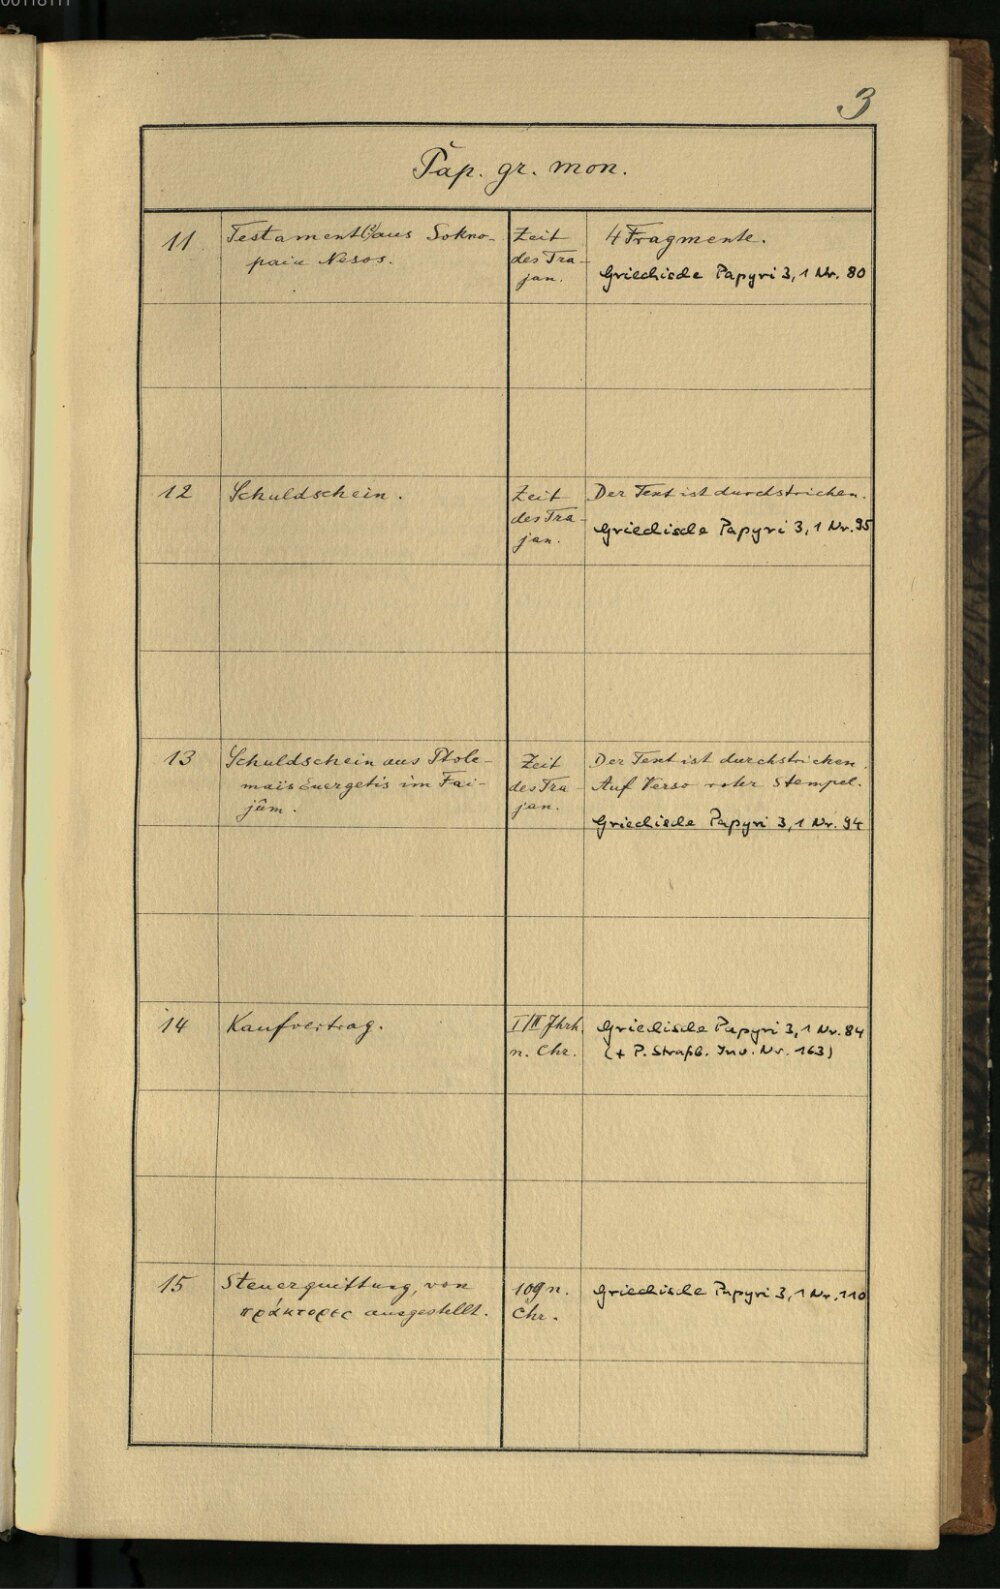 3
Pap. gr. mon.
11
Testament(?) aus Sokno-
paiu Nesos.
Zeit
des Tra-
jan.
4 Fragmente.
Griechische Papyri 3,1 Nr. 80
12
Schuldschein.
Zeit
des Tra-
jan.
Der Text ist durchstrichen.
Griechische Papyri 3,1 Nr. 95
13
Schuldschein aus Ptole-
maïs Euergetis im Fai-
jûm.
Zeit
des Tra-
jan.
Der Text ist durchstrichen.
Auf Verso roter Stempel.
Griechische Papyri 3,1 Nr. 94
14
Kaufvertrag.
I/II Jhrh.
n. Chr.
Griechische Papyri 3,1 Nr. 84
(+ P. Straßb. Inv. Nr. 163)
15
Steuerquittung, von
πράκτορες ausgestellt.
109 n.
Chr.
Griechische Papyri 3,1 Nr. 110